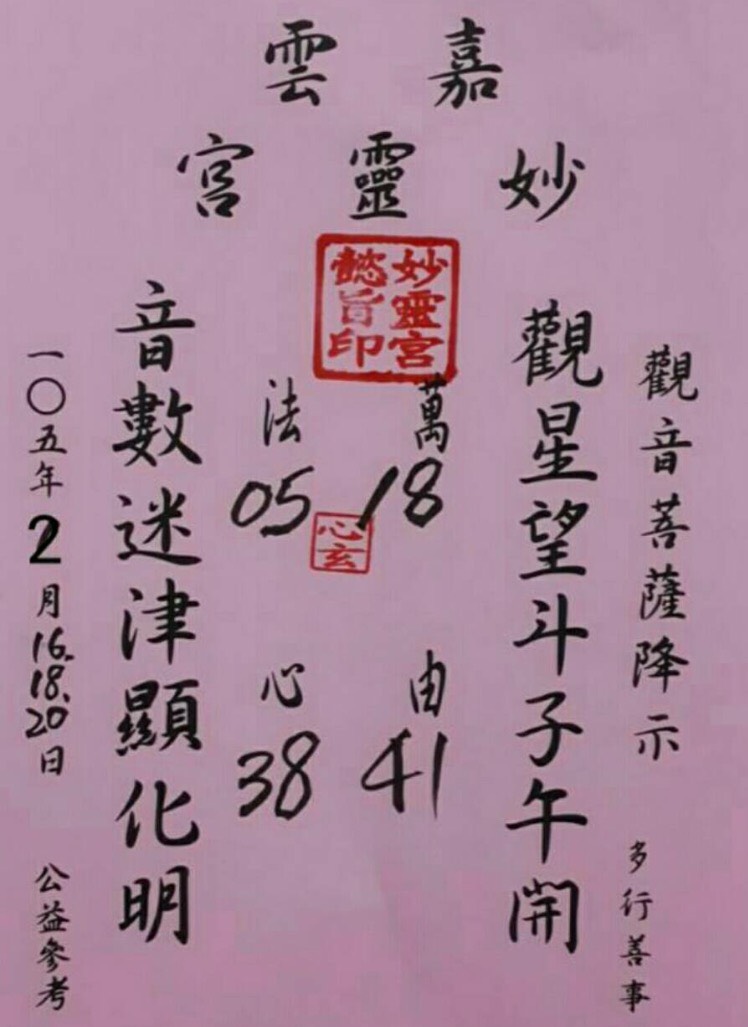 嘉雲
妙靈宮
觀音菩薩降示
多行善事
觀星望斗子午開
妙靈宮
懿旨印
萬法
18 05
心玄
由心
41 38
音數迷津顯化明
一〇五年2月16.18.20日
公益參考